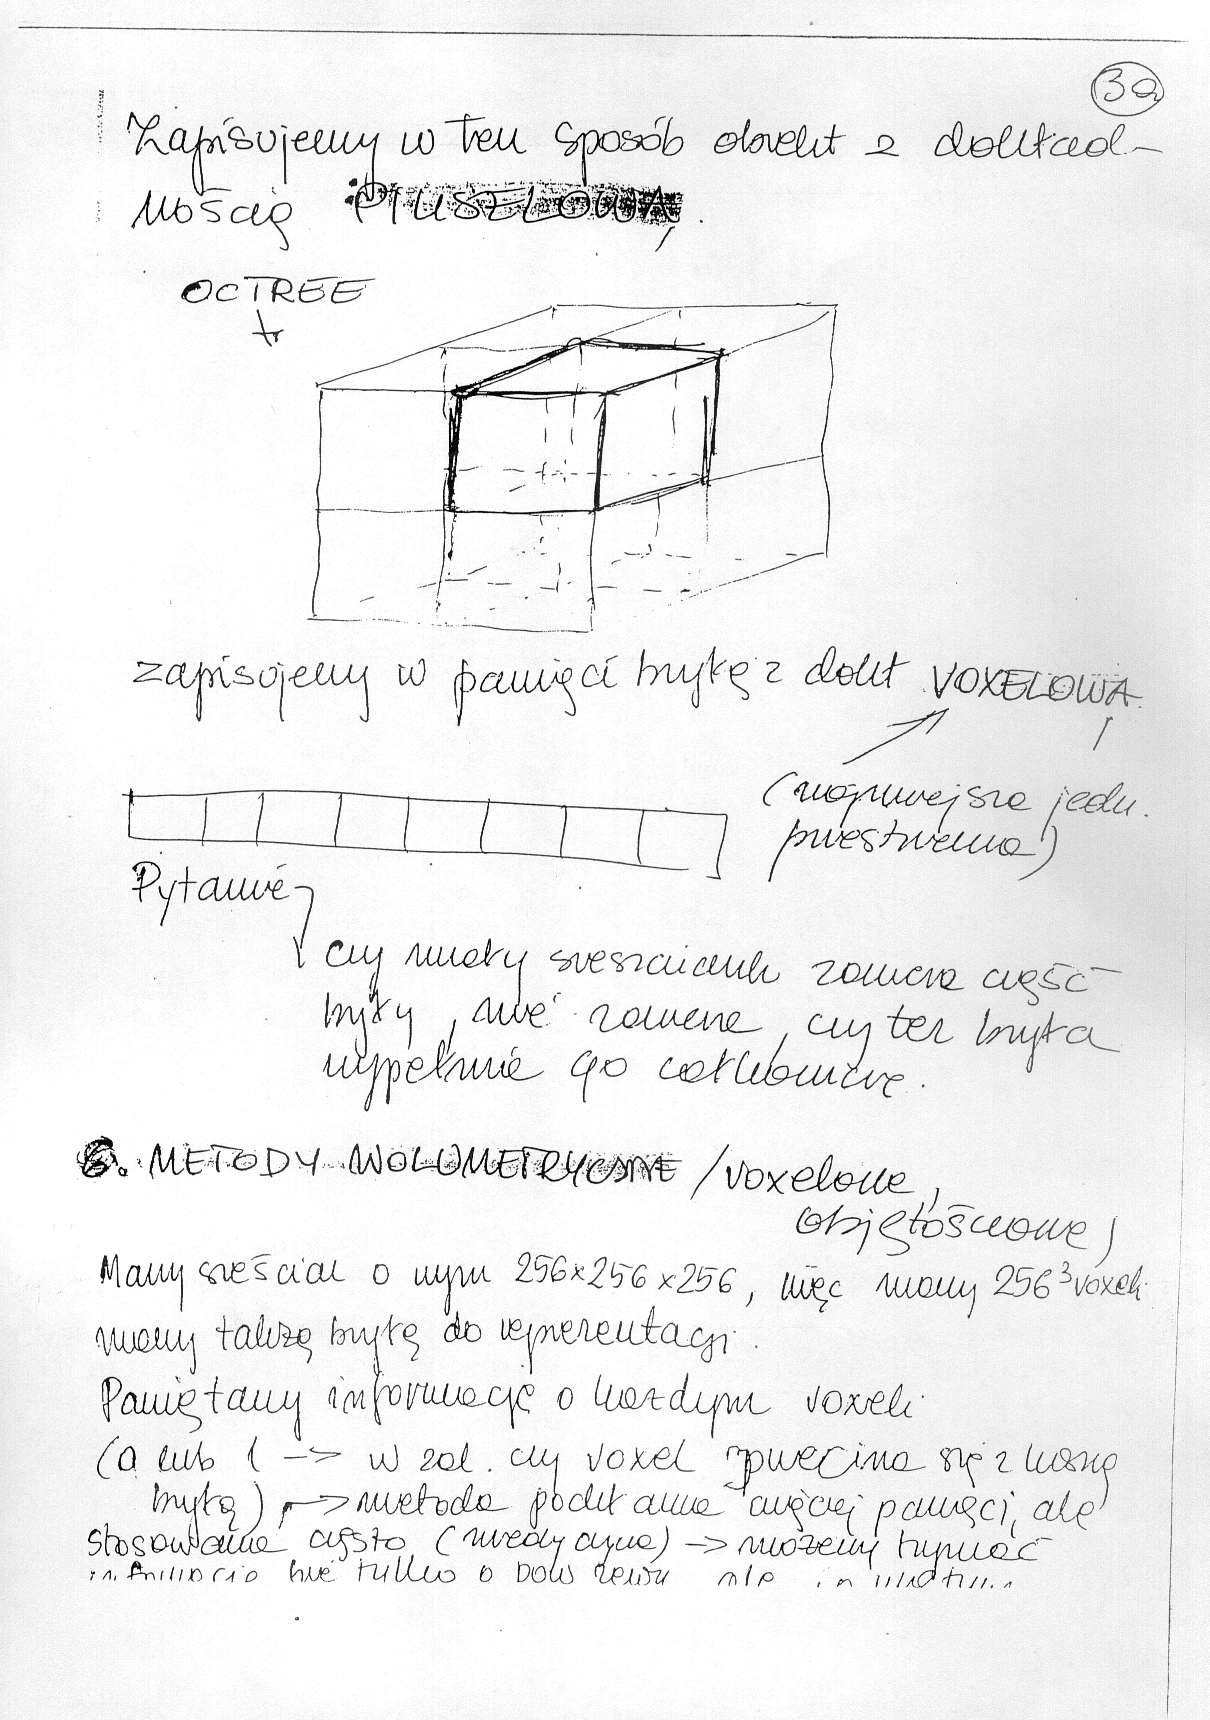 3a
Zapisujemy w ten sposób obiekt z dokład-
nością PIKSELOWĄ.
OCTREE
zapisujemy w pamięci bryłę z dokł VOXELOWĄ
(najmniejsza jedn.
przestrzenna)
Pytanie
czy mały sześcianik zawiera część
bryły, nie zawiera, czy też bryła
wypełnia go całkowicie.
6. METODY WOLUMETRYCZNE / voxelowe,
objętościowe)
Mamy sześcian o wym 256x256x256, więc mamy 256³ voxeli
mamy także bryłę do reprezentacji.
Pamiętamy informację o każdym voxeli
(0 lub 1 -> w zal. czy voxel przecina się z naszą
bryłą), -> metoda pochłania więcej pamięci, ale
stosowana często (medycyna) -> możemy trzymać
informacje nie tylko o pow ale